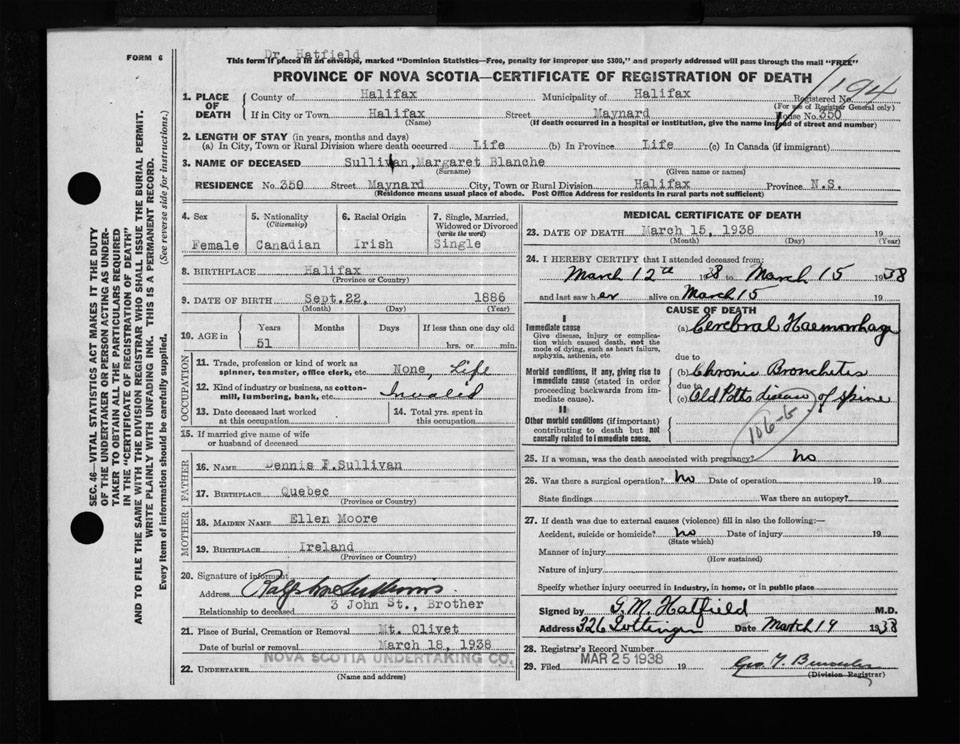 Dr. Hatfield
FORM 6
This form if placed in an envelope, marked "Dominion Statistics—Free, penalty for improper use $300," and properly addressed will pass through the mail "FREE"
PROVINCE OF NOVA SCOTIA—CERTIFICATE OF REGISTRATION OF DEATH
194
1. PLACE OF DEATH County of Halifax Municipality of Halifax Registered No.
(For use of Registrar General only)
If in City or Town Halifax Street Maynard House No. 350
(Name) (If death occurred in a hospital or institution, give the name instead of street and number)
2. LENGTH OF STAY (in years, months and days)
(a) In City, Town or Rural Division where death occurred Life (b) In Province Life (c) In Canada (if immigrant)
3. NAME OF DECEASED Sullivan, Margaret Blanche
(Surname) (Given name or names)
RESIDENCE No. 350 Street Maynard City, Town or Rural Division Halifax Province N.S.
(Residence means usual place of abode. Post Office Address for residents in rural parts not sufficient)
SEC. 46—VITAL STATISTICS ACT MAKES IT THE DUTY
OF THE UNDERTAKER OR PERSON ACTING AS UNDER-
TAKER TO OBTAIN ALL THE PARTICULARS REQUIRED
IN THE "CERTIFICATE OF REGISTRATION OF DEATH"
AND TO FILE THE SAME WITH THE DIVISION REGISTRAR WHO SHALL ISSUE THE BURIAL PERMIT.
WRITE PLAINLY WITH UNFADING INK. THIS IS A PERMANENT RECORD.
Every item of information should be carefully supplied. (See reverse side for instructions.)
4. Sex 5. Nationality (Citizenship) 6. Racial Origin 7. Single, Married, Widowed or Divorced (write the word)
Female Canadian Irish Single
8. BIRTHPLACE Halifax
(Province or Country)
9. DATE OF BIRTH Sept. 22, 1886
(Month) (Day) (Year)
10. AGE in Years Months Days If less than one day old
51 hrs. or min.
OCCUPATION
11. Trade, profession or kind of work as spinner, teamster, office clerk, etc. None, Life
12. Kind of industry or business, as cotton-mill, lumbering, bank, etc. Invalid
13. Date deceased last worked at this occupation 14. Total yrs. spent in this occupation
15. If married give name of wife or husband of deceased
FATHER
16. NAME Dennis F. Sullivan
17. BIRTHPLACE Quebec
(Province or Country)
MOTHER
18. MAIDEN NAME Ellen Moore
19. BIRTHPLACE Ireland
(Province or Country)
20. Signature of informant
Address
Relationship to deceased 3 John St., Brother
21. Place of Burial, Cremation or Removal Mt. Olivet
Date of burial or removal March 18, 1938
22. UNDERTAKER NOVA SCOTIA UNDERTAKING CO.
(Name and address)
MEDICAL CERTIFICATE OF DEATH
23. DATE OF DEATH March 15, 1938 19
(Month) (Day) (Year)
24. I HEREBY CERTIFY that I attended deceased from:
March 12th 1938 to March 15 1938
and last saw her alive on March 15 19
CAUSE OF DEATH
I
Immediate cause (a) Cerebral Haemorrhage
Give disease, injury or complication which caused death, not the mode of dying, such as heart failure, asphyxia, asthenia, etc
due to
Morbid conditions, if any, giving rise to immediate cause (stated in order proceeding backwards from immediate cause). (b) Chronic Bronchitis
due to
(c) Old Potts disease of spine
II
Other morbid conditions (if important) contributing to death but not causally related to immediate cause.
106-b
25. If a woman, was the death associated with pregnancy? no
26. Was there a surgical operation? no Date of operation 19
State findings Was there an autopsy?
27. If death was due to external causes (violence) fill in also the following:—
Accident, suicide or homicide? no Date of injury 19
(State which)
Manner of injury
(How sustained)
Nature of injury
Specify whether injury occurred in industry, in home, or in public place
Signed by G. M. Hatfield M.D.
Address 326 Gottingen Date March 19 1938
28. Registrar's Record Number
29. Filed MAR 25 1938 19
(Division Registrar)